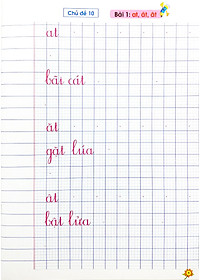 Chủ đề 10
Bài 1: at, ăt, ât
at
bãi cát
ăt
gặt lúa
ât
bật lửa